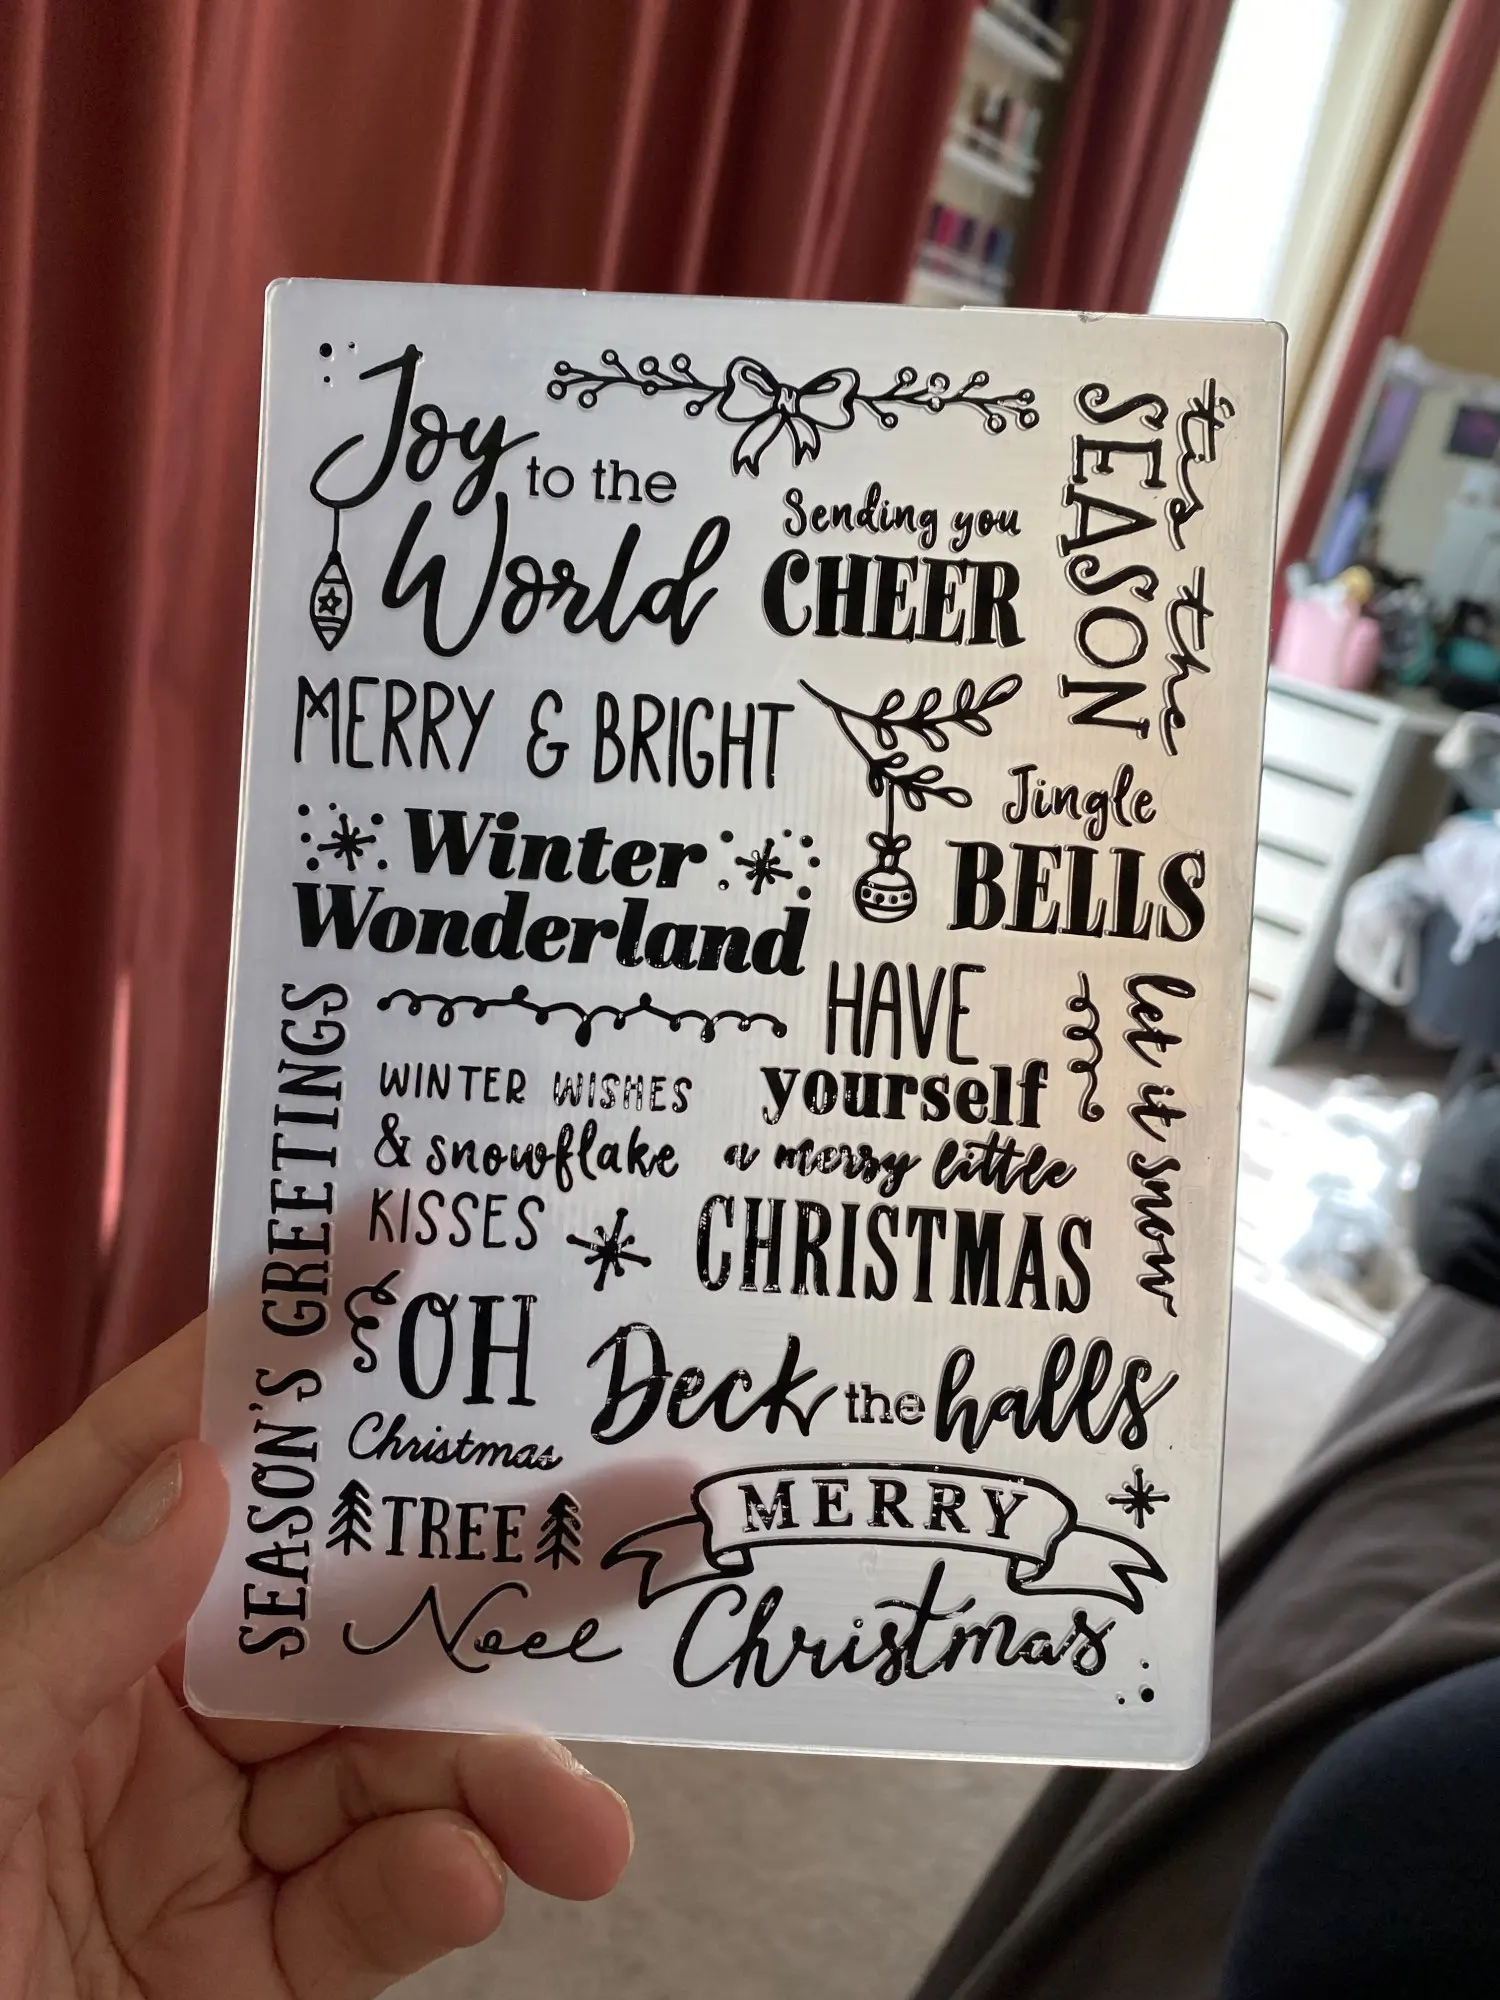 Joy
to the
World
Sending you
CHEER
tis the
SEASON
MERRY & BRIGHT
Jingle
BELLS
Winter
Wonderland
HAVE
yourself
a merry little
CHRISTMAS
let it snow
SEASON'S GREETINGS
WINTER WISHES
& snowflake
KISSES
OH
Christmas
TREE
Deck the halls
MERRY
Christmas
Noel